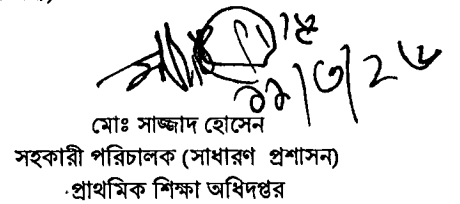 মোঃ সাজ্জাদ হোসেন
সহকারী পরিচালক (সাধারণ প্রশাসন)
প্রাথমিক শিক্ষা অধিদপ্তর